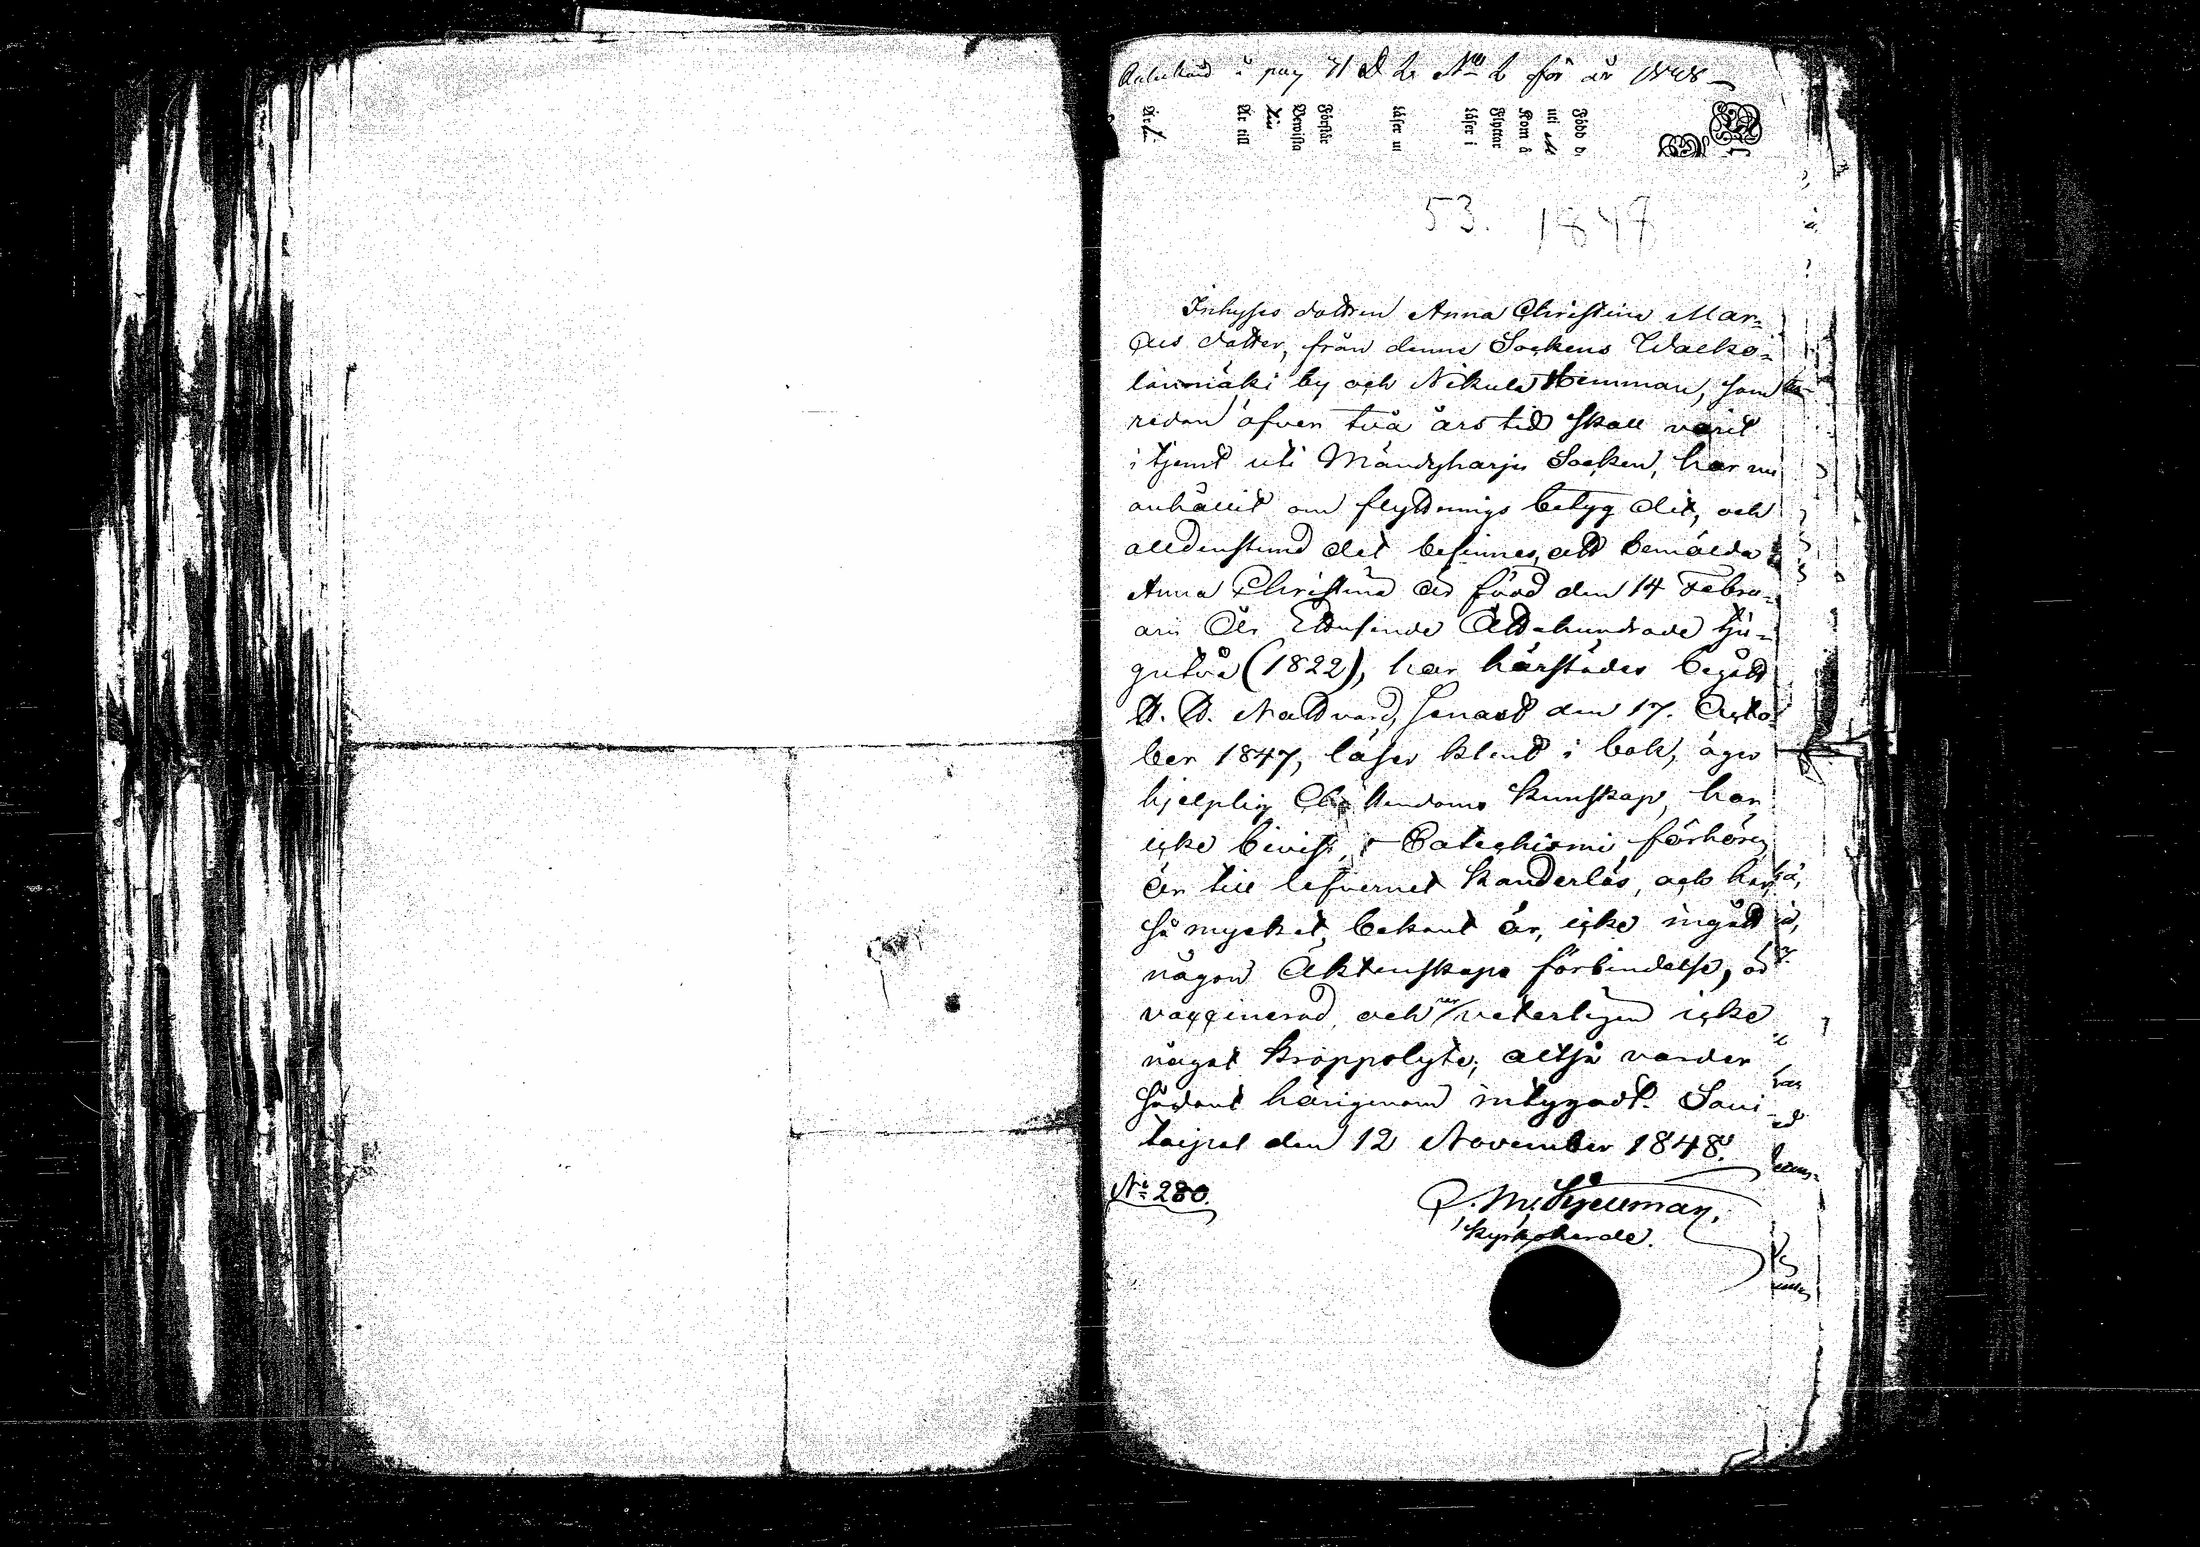 å pag 71 N:o 2 för år 1848
53. 1847
Inhyses dottren Anna Christina Mar-
cus dotter, från denne Sockens Walko-
lanmäki by och Nikula Hemman, som
redan öfver två års tid skall varit
i tjenst uti Mändyharju Socken, har nu
anhållit om flyttnings betyg dit, och
alldenstund det befinnes, att bemälda
Anna Christina är född den 14 Febru-
arii År Ettusende Åttahundrade tju-
gutvå (1822), har härstädes begått
H. H. Nattvard, senast den 17. Octo-
ber 1847, läser klent i bok, äger
hjelplig Christendoms kunskap, har
icke bivist Catechismi förhören,
är till lefvernet klanderlös, och har,
så mycket bekant är, icke ingått
någon Äktenskaps förbindelse, är
vaccinerad, och har veterligen icke
något kroppslyte; altså varder
sådant härigenom intygadt. Savi-
taipal den 12 November 1848.
N:o 280.
Kyrkoherde.